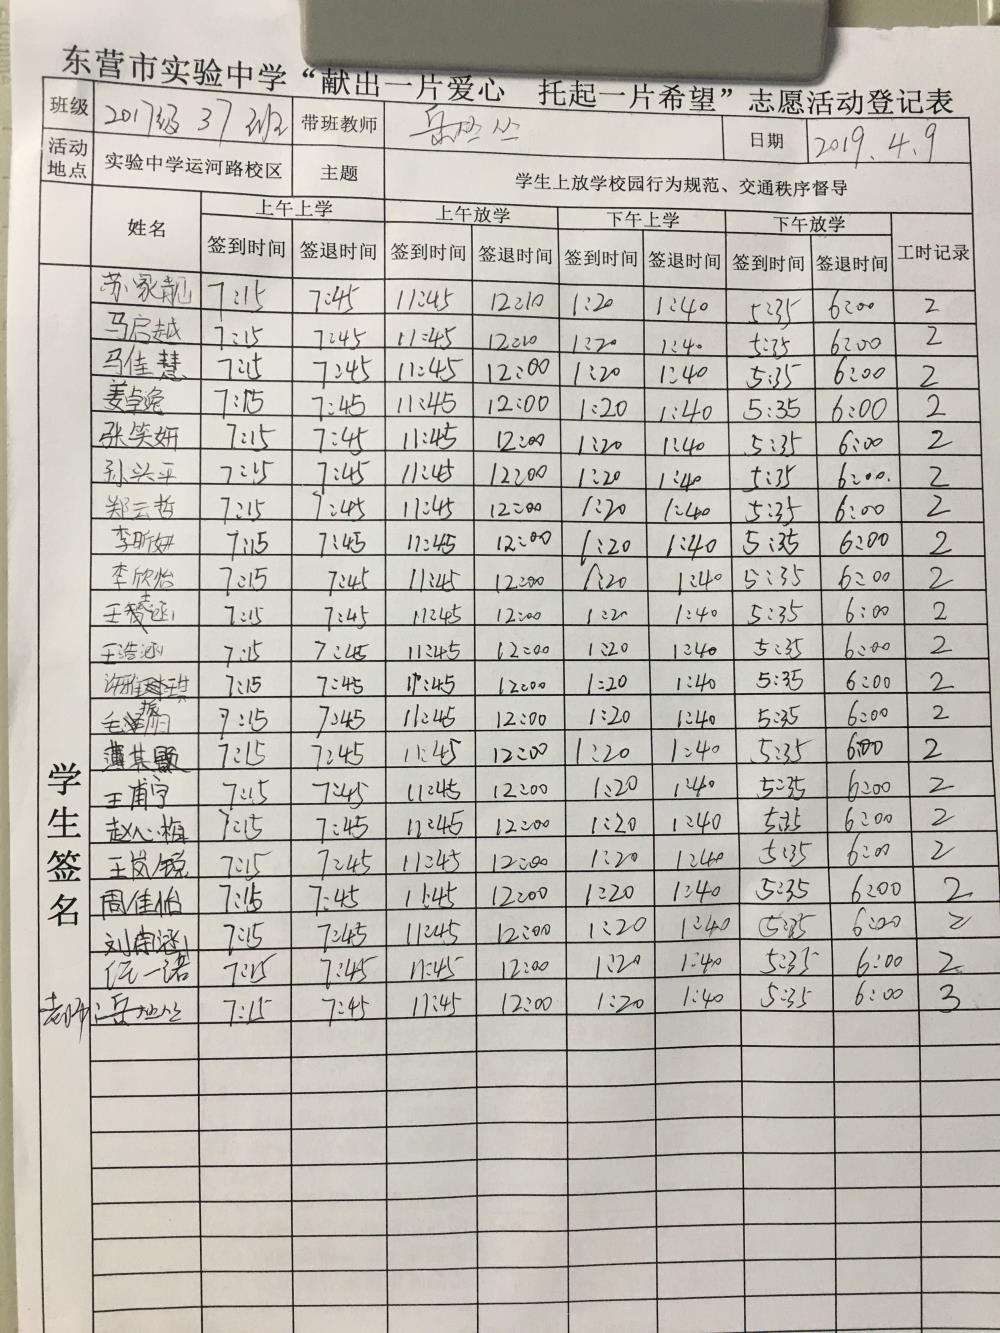 东营市实验中学“献出一片爱心 托起一片希望”志愿活动登记表
班级 2017级37班 带班教师 日期 2019.4.9
活动地点 实验中学运河路校区 主题 学生上放学校园行为规范、交通秩序督导
姓名 上午上学 上午放学 下午上学 下午放学 工时记录
签到时间 签退时间 签到时间 签退时间 签到时间 签退时间 签到时间 签退时间
学生签名
苏家靓 7:15 7:45 11:45 12:10 1:20 1:40 5:35 6:00 2
马启越 7:15 7:45 11:45 12:10 1:20 1:40 5:35 6:00 2
马佳慧 7:15 7:45 11:45 12:00 1:20 1:40 5:35 6:00 2
姜卓逸 7:15 7:45 11:45 12:00 1:20 1:40 5:35 6:00 2
张笑妍 7:15 7:45 11:45 12:00 1:20 1:40 5:35 6:00 2
孙兴平 7:15 7:45 11:45 12:00 1:20 1:40 5:35 6:00. 2
郑云哲 7:15 7:45 11:45 12:00 1:20 1:40 5:35 6:00 2
李昕妍 7:15 7:45 11:45 12:00 1:20 1:40 5:35 6:00 2
李欣怡 7:15 7:45 11:45 12:00 1:20 1:40 5:35 6:00 2
7:15 7:45 11:45 12:00 1:20 1:40 5:35 6:00 2
王浩涵 7:15 7:45 11:45 12:00 1:20 1:40 5:35 6:00 2
许雅琪 7:15 7:45 11:45 12:00 1:20 1:40 5:35 6:00 2
7:15 7:45 11:45 12:00 1:20 1:40 5:35 6:00 2
薄其颐 7:15 7:45 11:45 12:00 1:20 1:40 5:35 6:00 2
王甫宁 7:15 7:45 11:45 12:00 1:20 1:40 5:35 6:00 2
赵心梅 7:15 7:45 11:45 12:00 1:20 1:40 5:35 6:00 2
王岚锐 7:15 7:45 11:45 12:00 1:20 1:40 5:35 6:00 2
周佳怡 7:15 7:45 11:45 12:00 1:20 1:40 5:35 6:00 2
刘 涵 7:15 7:45 11:45 12:00 1:20 1:40 5:35 6:00 2
伍一诺 7:15 7:45 11:45 12:00 1:20 1:40 5:35 6:00 2
老师: 7:15 7:45 11:45 12:00 1:20 1:40 5:35 6:00 3